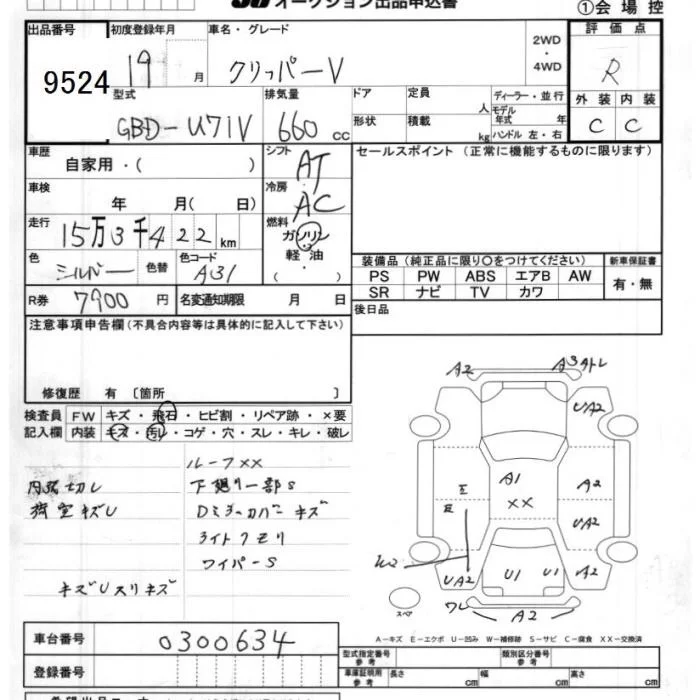 オークション出品申込書
①会場控
出品番号
初度登録年月
車名・グレード
2WD
・
4WD
評価点
9524
19
月
クリッパーV
R
型式
排気量
ドア
定員
人
ディーラー・並行
モデル年式
年
外装
内装
GBD-U71V
660
cc
形状
積載
kg
ハンドル 左・右
C
C
車歴
自家用・(
)
シフト
AT
セールスポイント (正常に機能するものに限ります)
車検
年
月(
日)
冷房
AC
走行
15万3千422
km
燃料
ガソリン
・
軽油
(
)
色
シルバー
色替
色コード
A31
装備品 (純正品に限り○をつけてください)
新車保証書
PS
PW
ABS
エアB
AW
有・無
SR
ナビ
TV
カワ
R券
7900
円
名変通知期限
月
日
後日品
注意事項申告欄(不具合内容等は具体的に記入して下さい)
修復歴 有 〔箇所
〕
検査員
記入欄
FW
キズ・飛石・ヒビ割・リペア跡・×要
内装
キズ・汚レ・コゲ・穴・スレ・キレ・破レ
ルーフXX
内張切レ
下廻リ一部S
荷室キズU
Dミラーカバーキズ
ライトクモリ
ワイパーS
キズUスリキズ
A2
A3
UA2
A1
XX
A2
UA2
W2
UA2
U1
U1
A2
ワレ
A2
スペア
A-キズ E-エクボ U-凹み W-補修跡 S-サビ C-腐食 XX-交換済
車台番号
0300634
登録番号
型式指定番号
参考
類別区分番号
参考
車庫証明用
参考
長さ
cm
幅
cm
高さ
cm